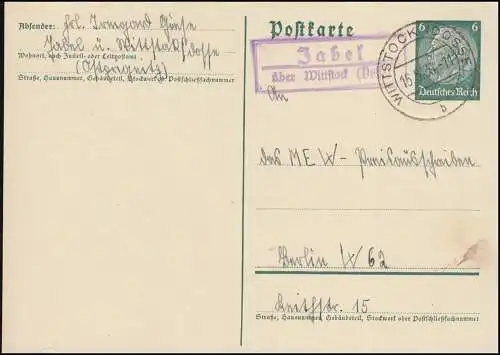 Absender: Frl. Irmgard Giese
Jabel ü. Wittstock/Dosse
Wohnort, auch Zustell- oder Leitpostamt
(Ostprignitz)
Straße, Hausnummer, Gebäudeteil, Stockwerk od. Postschließfachnummer
Postkarte
Jabel
über Wittstock
WITTSTOCK (DOSSE)
15
b
6 6
Deutsches Reich
An
das MEW-Preisausschreiben
Berlin W 62
Keithstr. 15
Straße, Hausnummer, Gebäudeteil, Stockwerk oder Postschließfachnummer